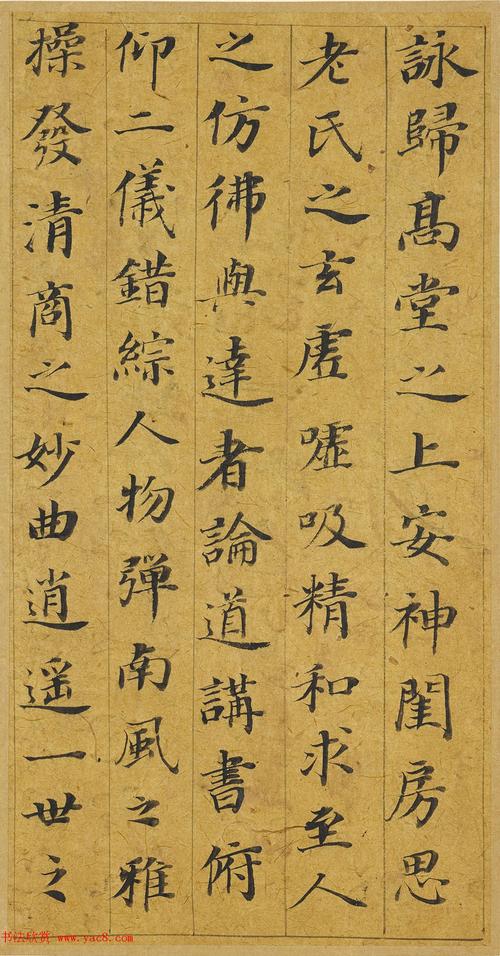 詠歸髙堂之上安神閨房思
老氏之玄虛嘘吸精和求至人
之仿彿與達者論道講書俯
仰二儀錯綜人物彈南風之雅
操發清商之妙曲逍遥一世之
书法欣赏 www.yac8.com